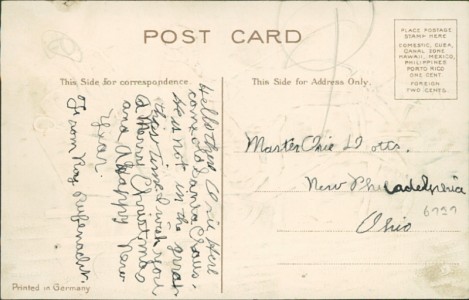 POST CARD
PLACE POSTAGE
STAMP HERE
DOMESTIC, CUBA,
CANAL ZONE
HAWAII, MEXICO,
PHILIPPINES
PORTO RICO
ONE CENT.
FOREIGN
TWO CENTS.
This Side for correspondence.
This Side for Address Only.
Hello there Orie Here
comes old Santa Claus.
He is not in the
this time I wish you
A Merry Christmas
and A Happy New
Year.
From Ray Rufenacht.
Master Orie
New Philadelphia
Ohio
6737
Printed in Germany